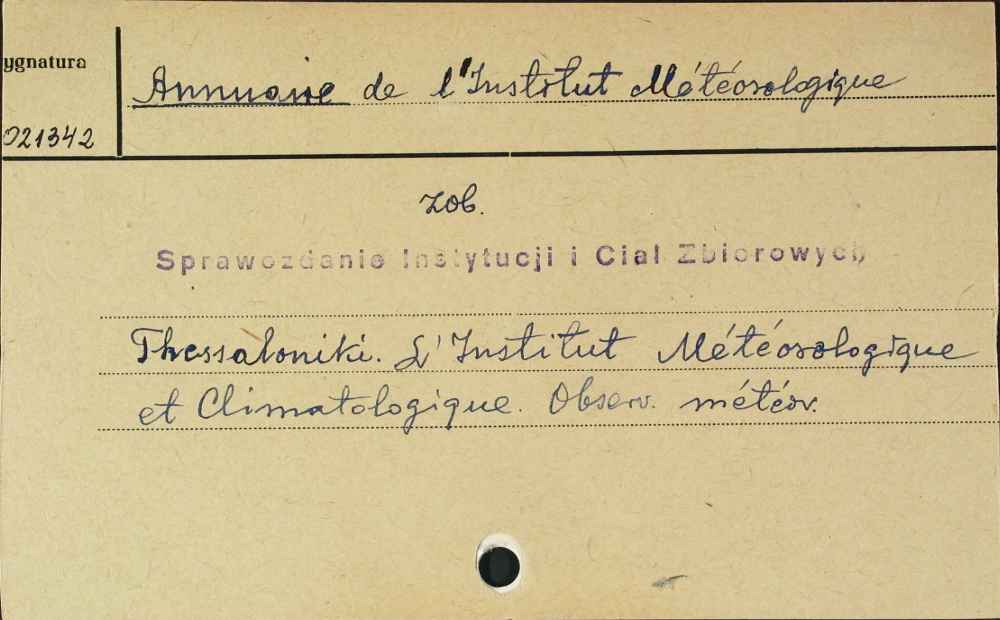 ygnatura
Annuaire de l'Institut Météorologique
021342
zob.
Sprawozdanie Instytucji i Ciał Zbiorowych
Thessaloniki. L'Institut Météorologique
et Climatologique. Observ. météor.